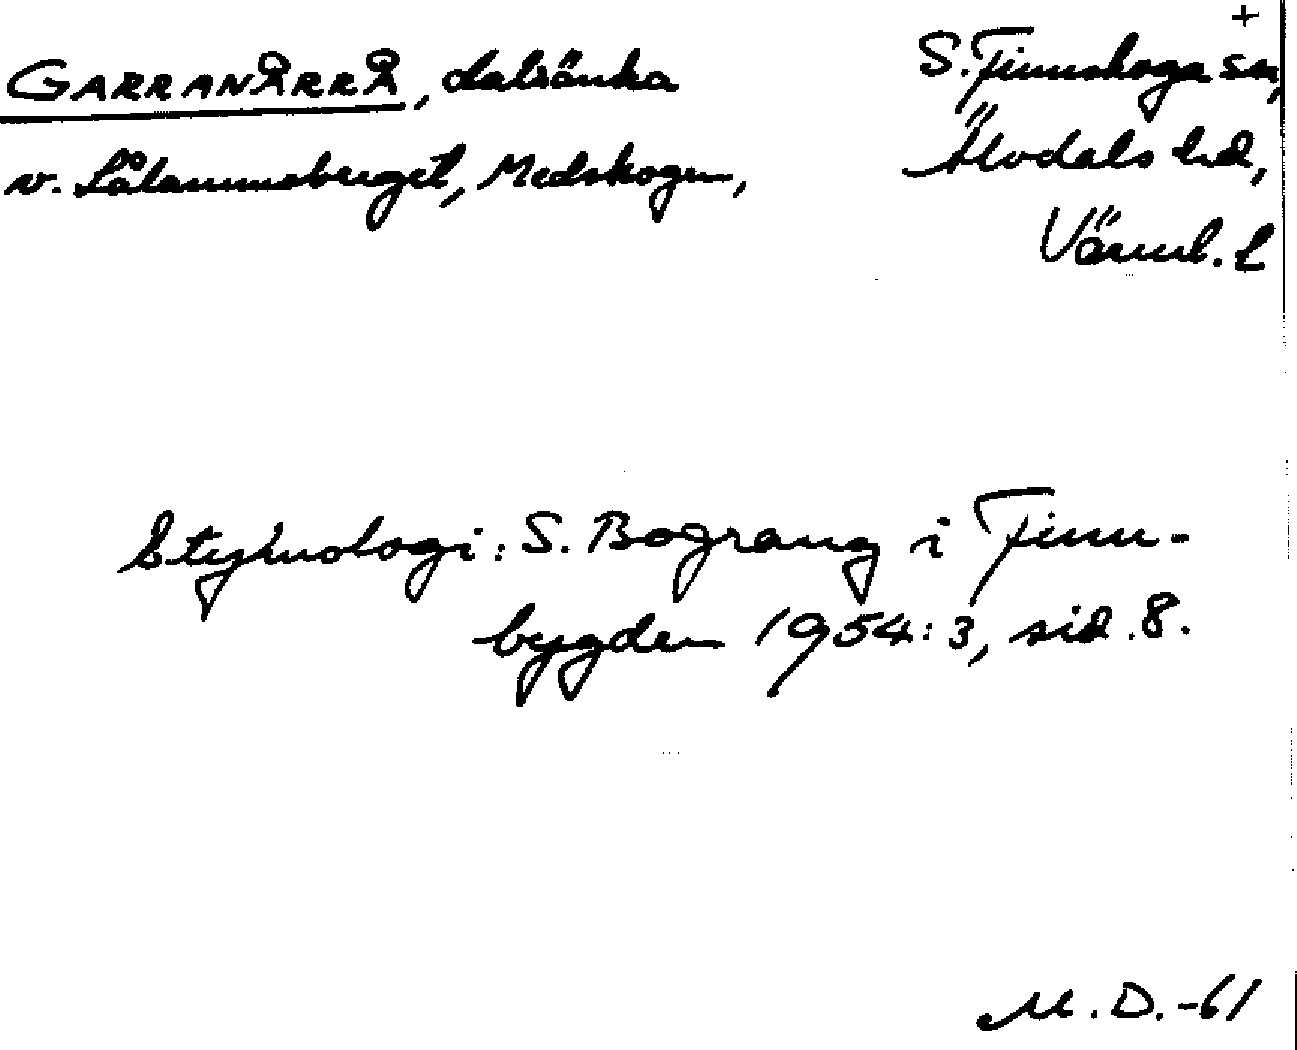 +
GARRANÅRRÅ, dalsänka
v. Låtammsberget, Medskogen,
S. Finnskoga sn,
Älvdals hd,
Värml. l
Etymologi: S. Bograng i Finn-
bygden 1954:3, sid. 8.
M. D. -61